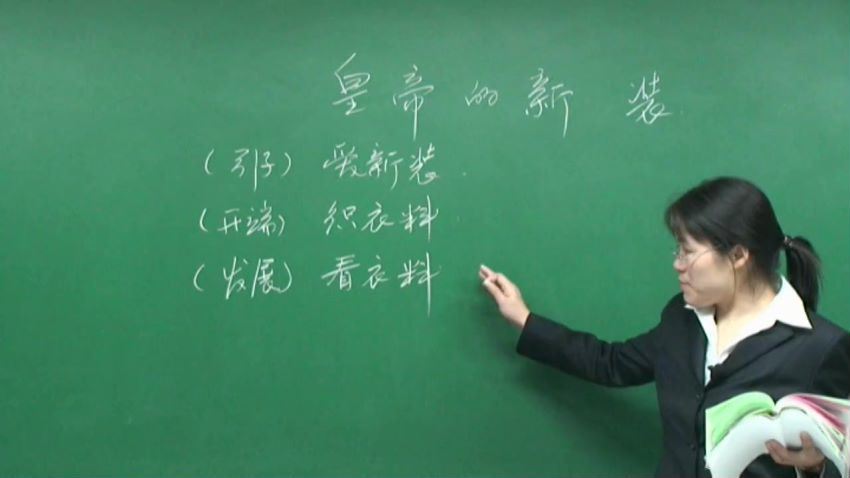 皇帝的新装
(引子) 爱新装
(开端) 织衣料
(发展) 看衣料